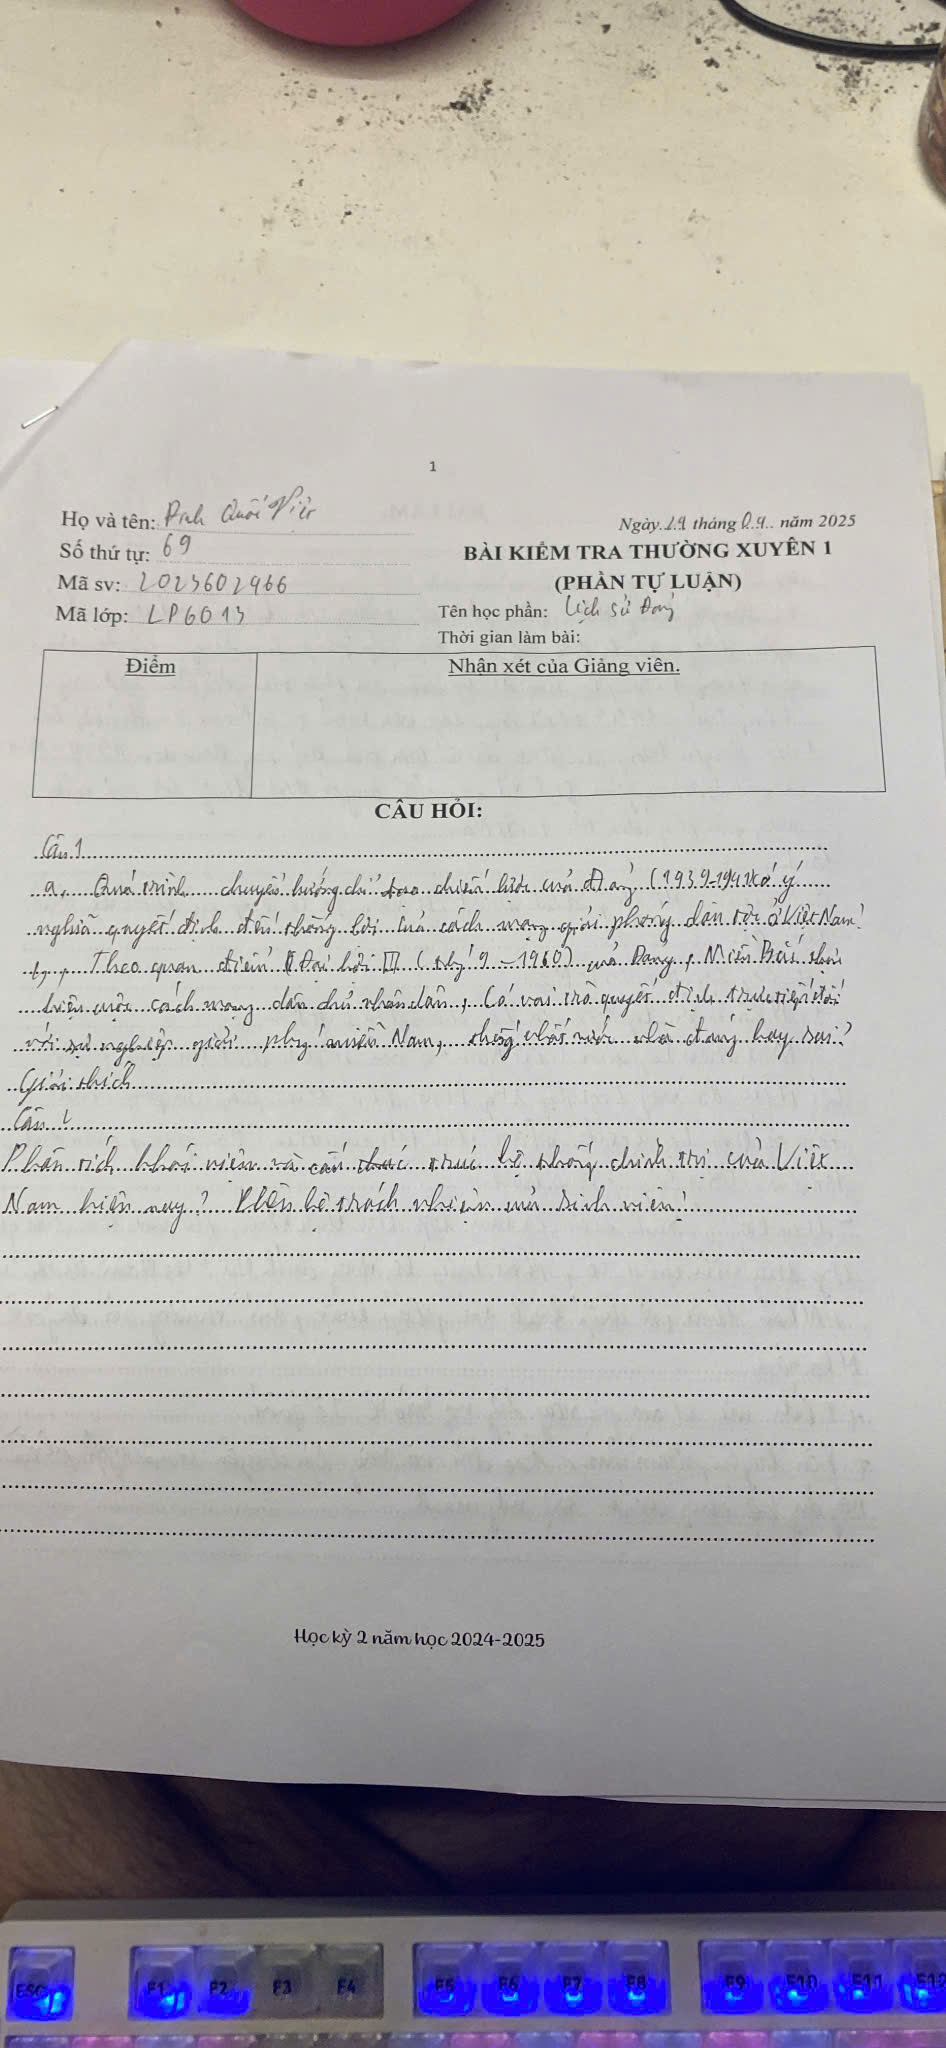 1
Họ và tên: Đinh Quốc Việt
Ngày 19 tháng 09 năm 2025
Số thứ tự: 69
BÀI KIỂM TRA THƯỜNG XUYÊN 1
Mã sv: 2023602966
(PHẦN TỰ LUẬN)
Mã lớp: LP6013
Tên học phần: Lịch sử Đảng
Thời gian làm bài:
Điểm
Nhận xét của Giảng viên.
CÂU HỎI:
Câu 1
a, Quá trình chuyển hướng chỉ đạo chiến lược của Đảng (1939-1941) có ý
nghĩa quyết định đến thắng lợi của cách mạng giải phóng dân tộc ở Việt Nam!
b, Theo quan điểm Đại hội III (9-1960) của Đảng, Miền Bắc thực
hiện cuộc cách mạng dân chủ nhân dân, có vai trò quyết định trực tiếp đối
với sự nghiệp giải phóng miền Nam, thống nhất nước nhà đúng hay sai?
Giải thích
Câu 2
Phân tích khái niệm và cấu trúc hệ thống chính trị của Việt
Nam hiện nay? Liên hệ trách nhiệm của sinh viên!
Học kỳ 2 năm học 2024-2025
ESC F1 F2 F3 F4 F5 F6 F7 F8 F9 F10 F11 F12